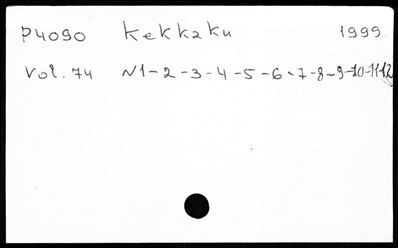 P4090 Kekkaku 1999.
Vol. 74 N1-2-3-4-5-6-7-8-9-10-11-12